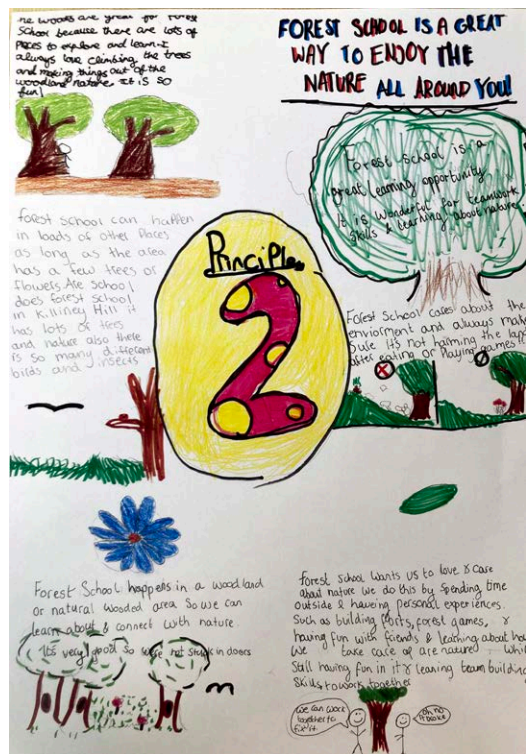 he woods are great for forest
School because there are lots of
places to explore and learn. I
always love climbing the trees
and making things out of the
woodland nature. It is so
fun!
FOREST SCHOOL IS A GREAT
WAY TO ENJOY THE
NATURE ALL AROUND YOU!
Forest school is a
great learning opportunity
It is wonderful for teamwork
skills & learning about nature.
forest school can happen
in loads of other places
as long as the area
has a few trees or
flowers. Are school
does forest school
in Killiney Hill it
has lots of trees
and nature also there
is so many different
birds and insects
Principle
2
Forest School cares about the
enviorment and always make
Sure it's not harming the
after eating or Playing games
Forest School happens in a woodland
or natural wooded area So we can
learn about & connect with nature
It's very good so we're not stuck in doors
forest school wants us to love & care
about nature we do this by spending time
outside & haveing personal experiences.
Such as building forts, forest games, &
having fun with friends & learning about how
We take care of are nature whil
Still having fun in it & leaning team building
Skills, to work together
we can work
together to
fix it
oh no
it broke